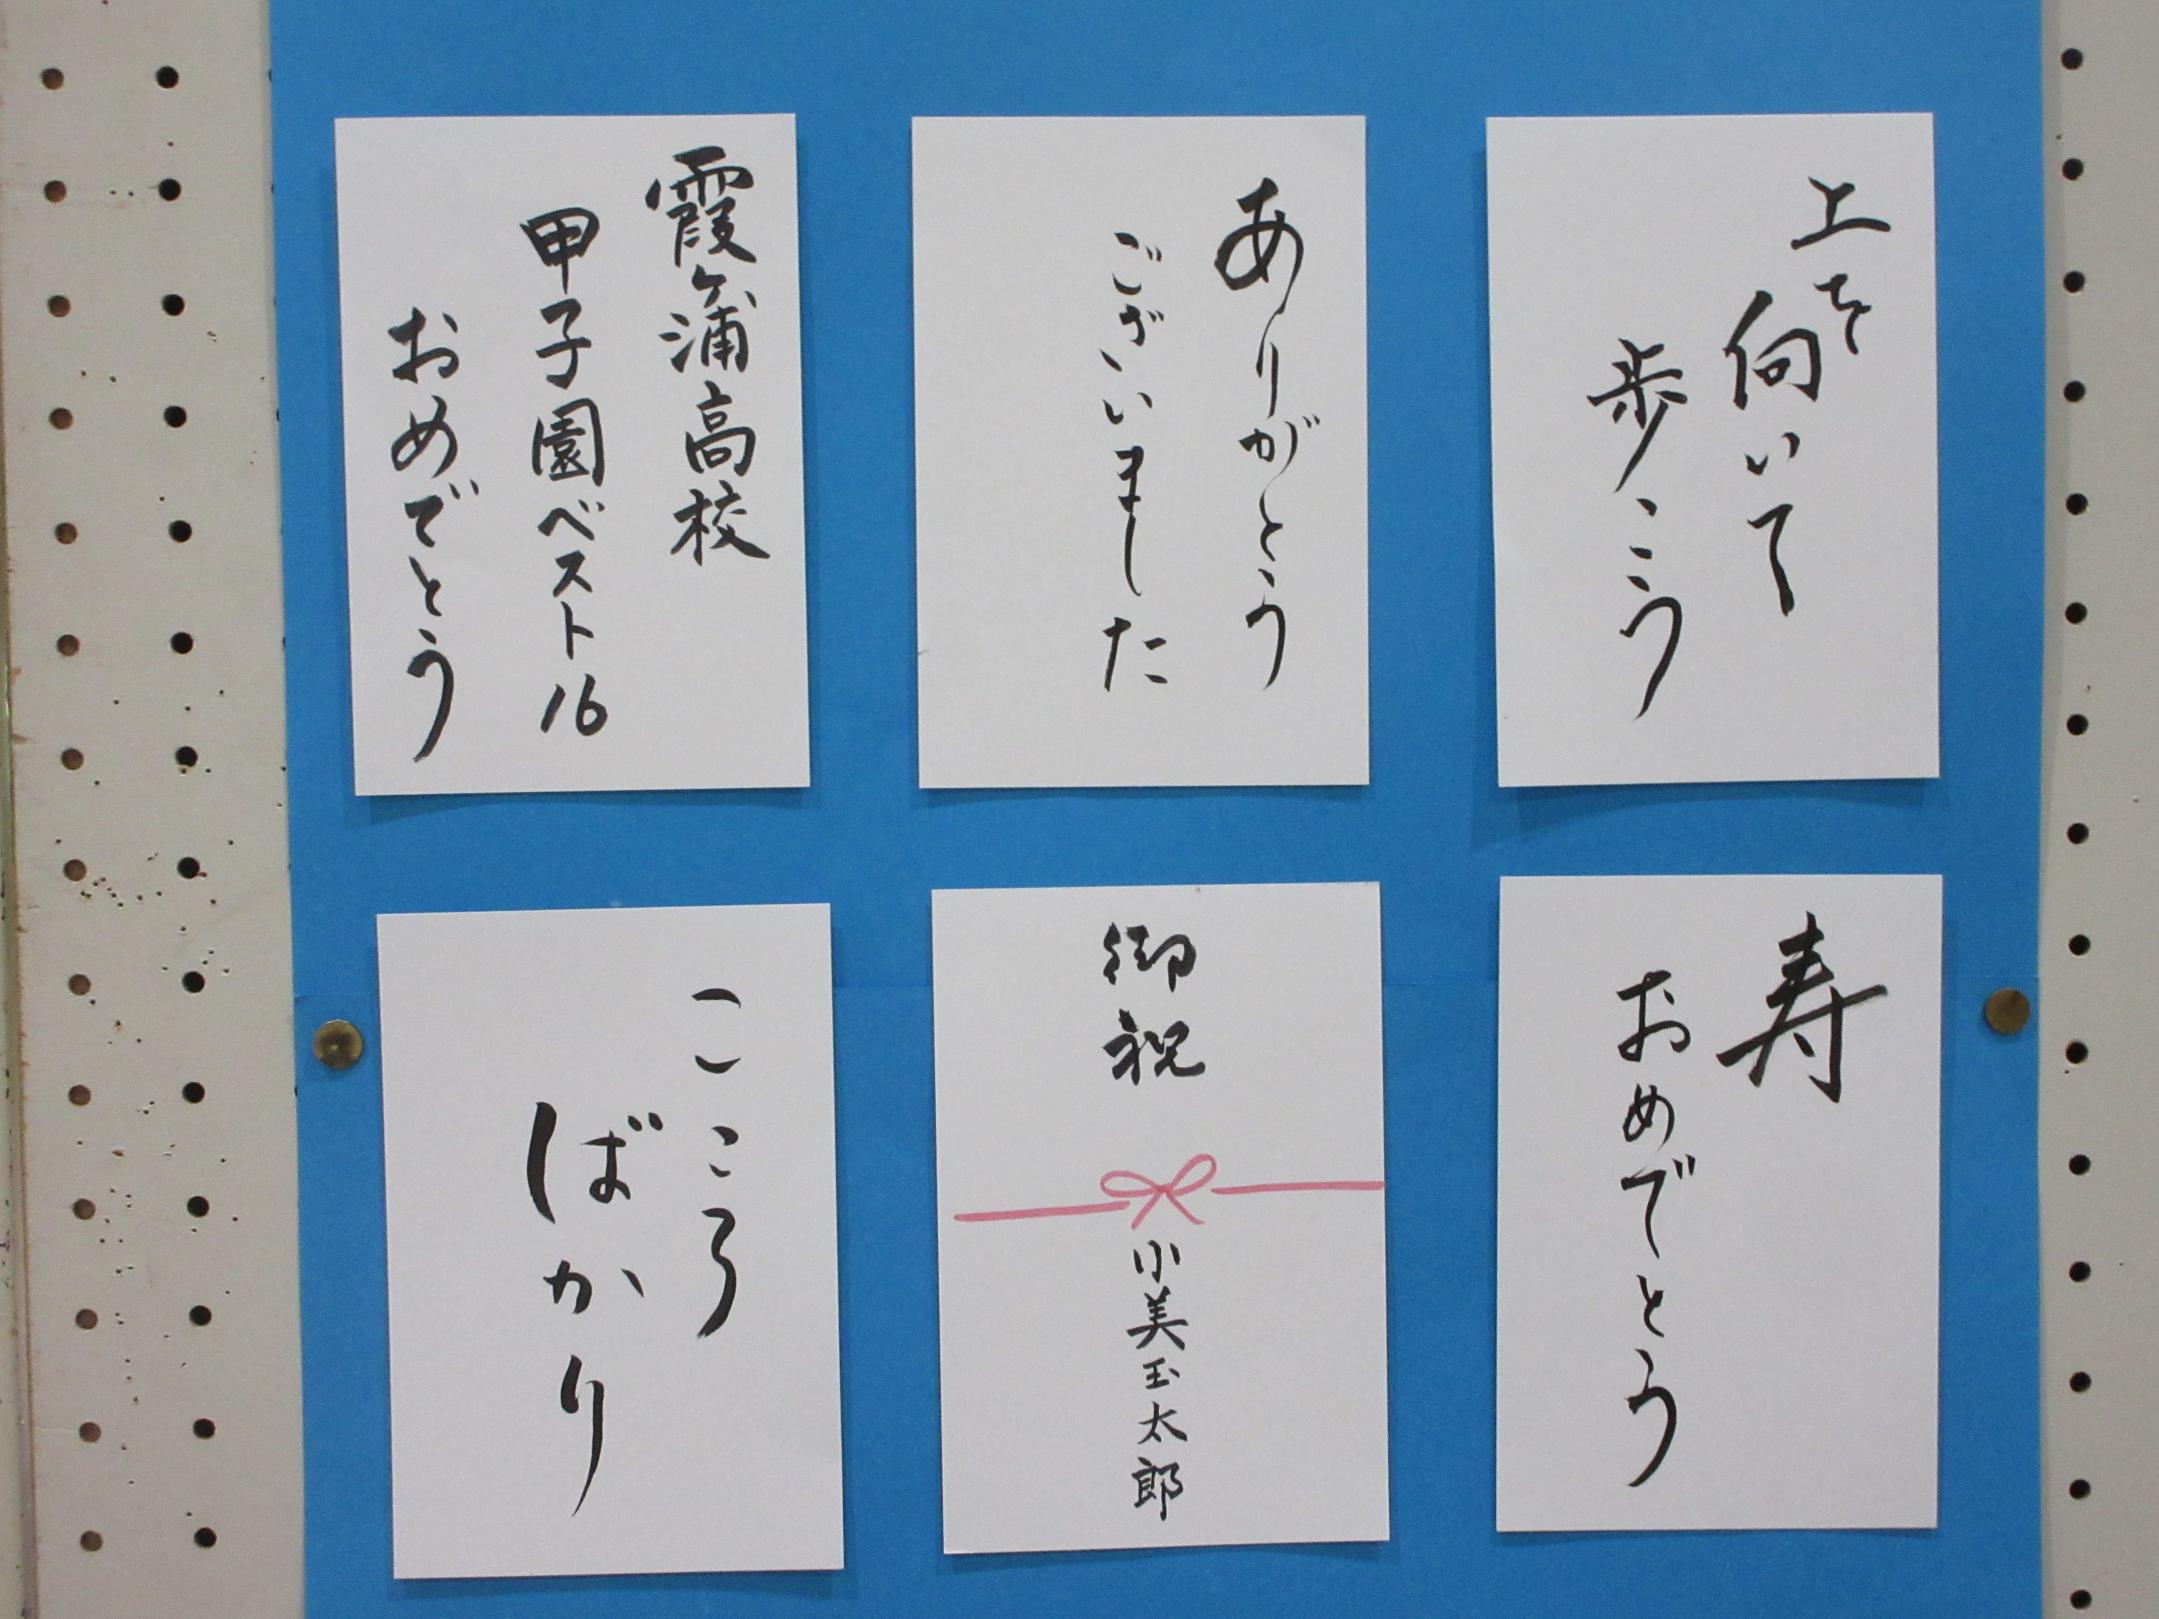 上を向いて
歩こう
ありがとう
ございました
霞ヶ浦高校
甲子園ベスト16
おめでとう
寿
おめでとう
御祝
小美玉太郎
こころ
ばかり